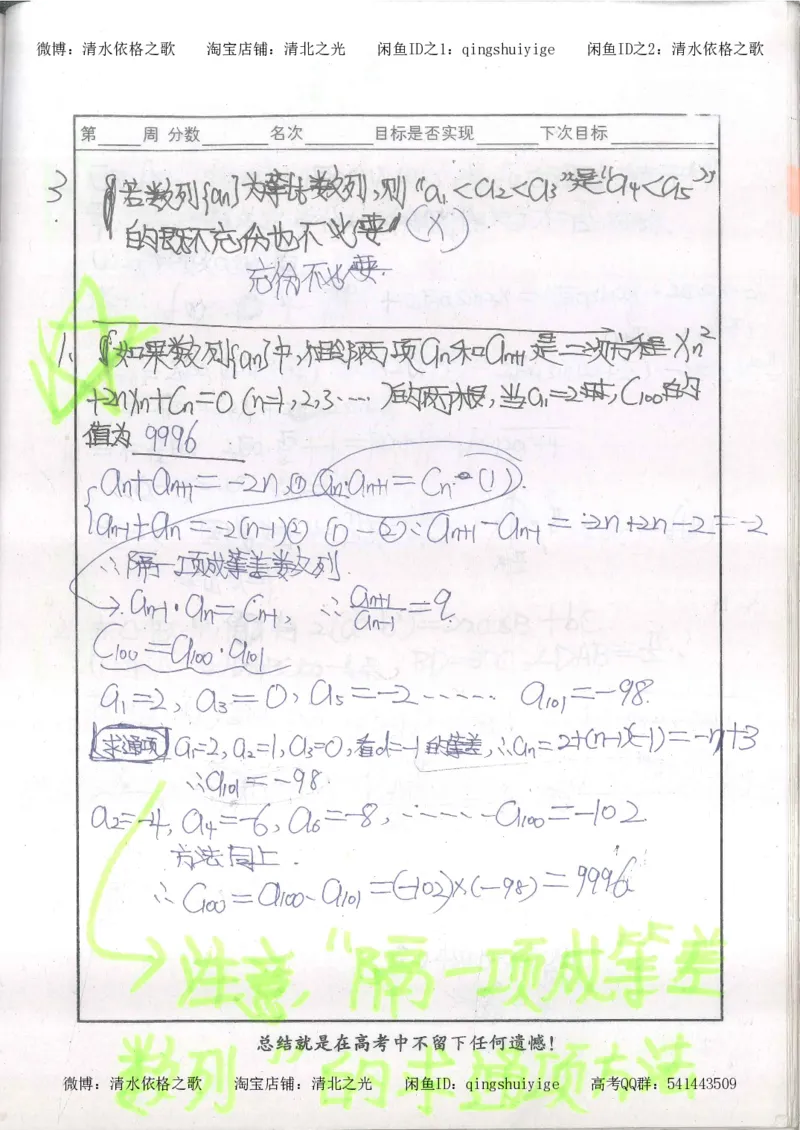 微博：清水依格之歌 淘宝店铺：清北之光 闲鱼ID之1：qingshuiyige 闲鱼ID之2：清水依格之歌
第____周 分数______ 名次______ 目标是否实现______ 下次目标______
3. 若数列{an}为等比数列，则“a1<a2<a3”是“a4<a5”
的既不充份也不必要” (×)
充份不必要.
1. 如果数列{an}中，相邻两项an和an+1是二次方程Xn²
+2nXn+Cn=0 (n=1,2,3…)的两根，当a1=2时，C100的
值为 9996
an+an+1=-2n,① an·an+1=Cn (1).
an-1+an=-2(n-1)② ①-②: an+1-an-1=-2n+2n-2=-2
∴隔一项成等差数列.
→ an-1·an=Cn-1, ∴ an+1/an-1=q
C100=a100·a101
a1=2, a3=0, a5=-2…… a101=-98.
求通项 a1=2, a2=1, a3=0, 看d=-1的等差, ∴an=2+(n-1)(-1)=-n+3
∴a101=-98.
a2=-4, a4=-6, a6=-8, …… a100=-102
方法同上.
∴C100=a100·a101=(-102)×(-98)=9996
→注意，“隔一项成等差
总结就是在高考中不留下任何遗憾！
数列”的求通项方法
微博：清水依格之歌 淘宝店铺：清北之光 闲鱼ID：qingshuiyige 高考QQ群：541443509